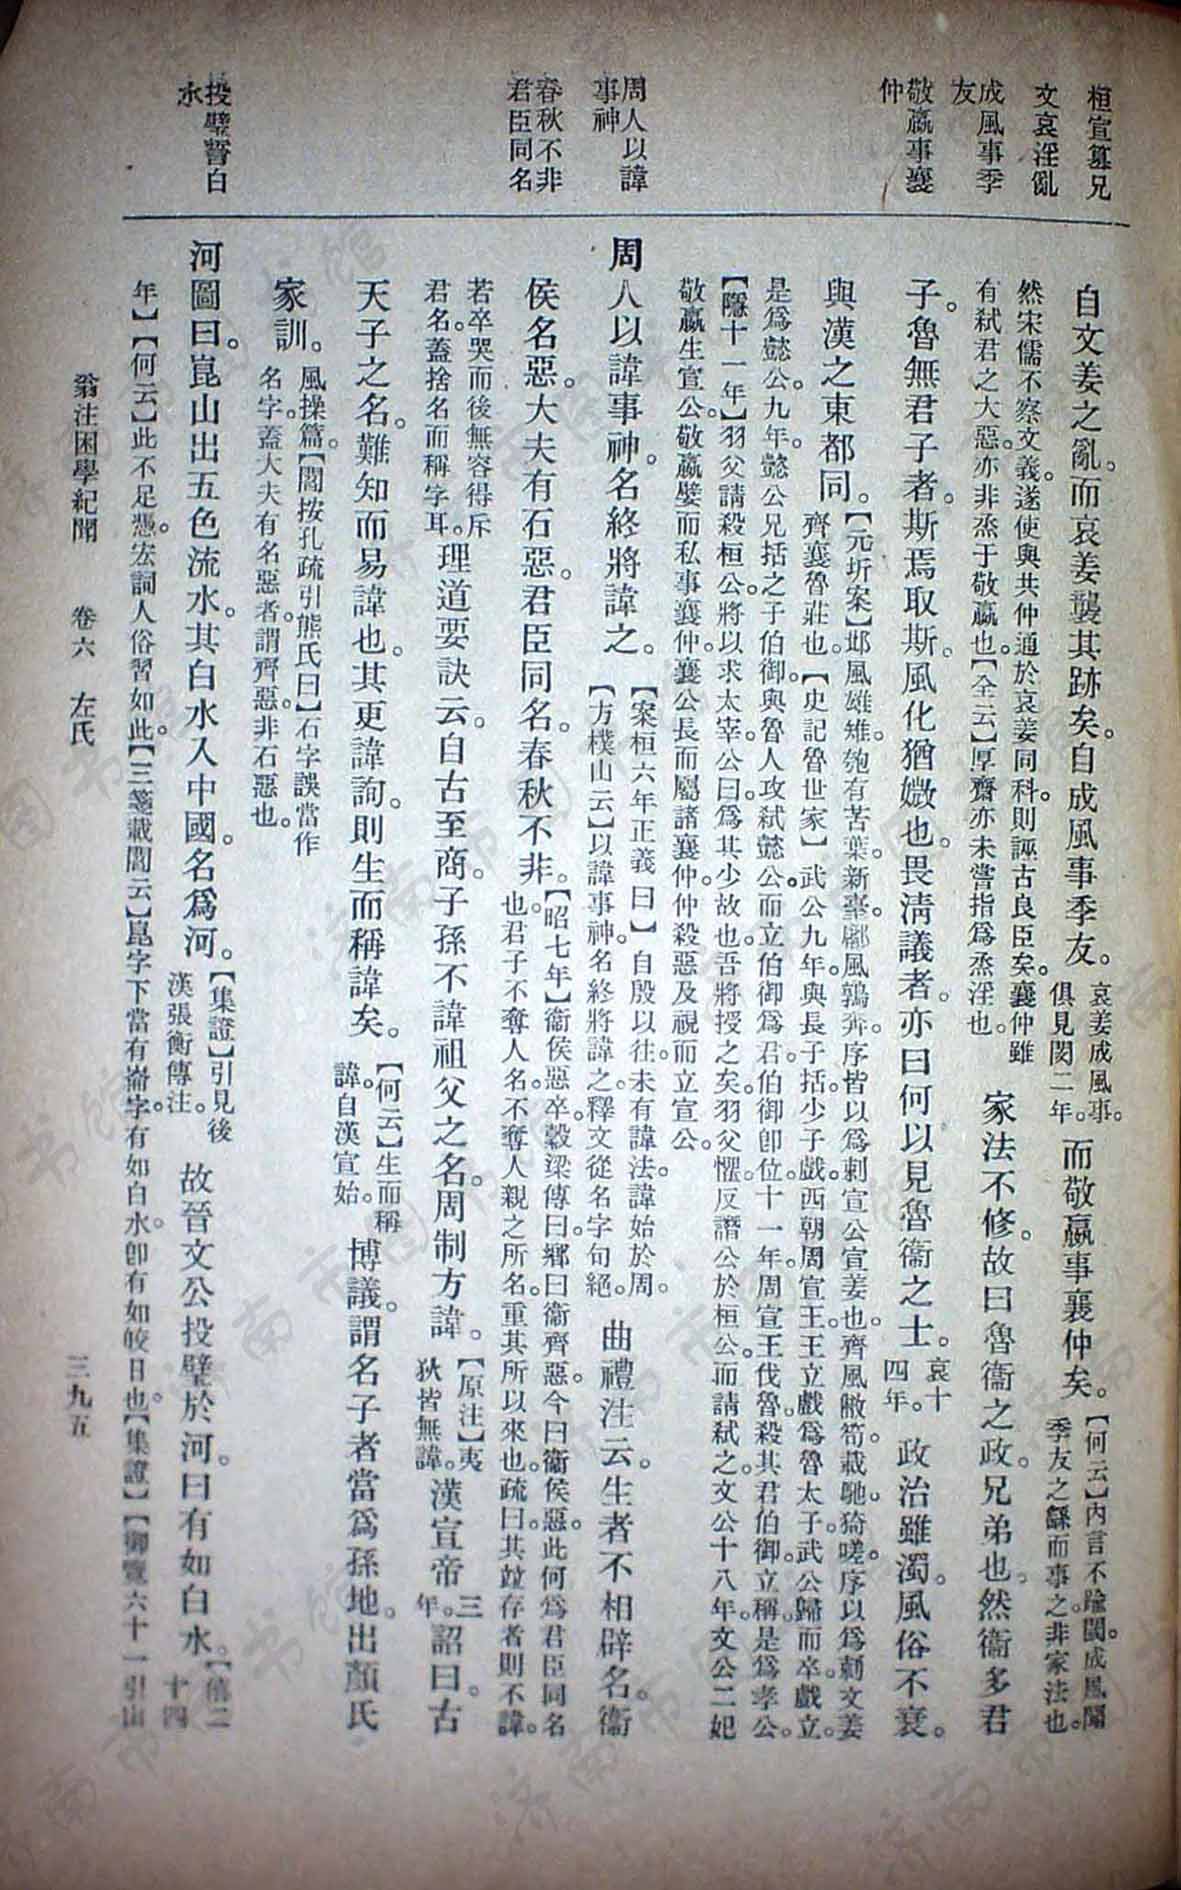 桓宣簒兄
文哀淫亂
成風事季
友
敬嬴事襄
仲
周人以諱
事神
春秋不非
君臣同名
投璧誓白
水
自文姜之亂。而哀姜襲其跡矣。自成風事季友。
哀姜成風事。
俱見閔二年。
而敬嬴事襄仲矣。
【何云】內言不踰閾。成風聞
季友之繇而事之。非家法也。
然宋儒不察文義。遂使與共仲通於哀姜同科。則誣古良臣矣。襄仲雖
有弒君之大惡。亦非烝于敬嬴也。【全云】厚齋亦未嘗指爲烝淫也。
家法不修。故曰魯衞之政。兄弟也。然衞多君
子。魯無君子者。斯焉取斯。風化猶媺也。畏淸議者。亦曰何以見魯衞之士。
哀十
四年。
政治雖濁。風俗不衰。
與漢之東都同。
【元圻案】邶風雄雉。匏有苦葉。新臺。鄘風鶉奔。序皆以爲刺宣公宣姜也。齊風敝笱。載馳。猗嗟。序以爲刺文姜
齊襄魯莊也。【史記魯世家】武公九年。與長子括。少子戲。西朝周宣王。王立戲爲魯太子。武公歸而卒。戲立。
是爲懿公。九年。懿公兄括之子伯御。與魯人攻弒懿公。而立伯御爲君。伯御卽位十一年。周宣王伐魯。殺其君伯御。立稱。是爲孝公。
【隱十一年】羽父請殺桓公。將以求太宰。公曰。爲其少故也。吾將授之矣。羽父懼。反譖公於桓公。而請弒之。文公十八年。文公二妃
敬嬴生宣公。敬嬴嬖而私事襄仲。襄公長而屬諸襄仲。仲殺惡及視而立宣公。
周人以諱事神。名終將諱之。
【案桓六年正義曰】自殷以往。未有諱法。諱始於周。
【方樸山云】以諱事神。名終將諱之。釋文從名字句絕。
曲禮注云。生者不相辟名。衞
侯名惡。大夫有石惡。君臣同名。春秋不非。
【昭七年】衞侯惡卒。穀梁傳曰。鄕曰衞齊惡。今曰衞侯惡。此何爲君臣同名
也。君子不奪人名。不奪人親之所名。重其所以來也。疏曰。其竝存者則不諱。
若卒哭而後無容得斥
君名。蓋捨名而稱字耳。
理道要訣云。自古至商。子孫不諱祖父之名。周制方諱。
【原注】夷
狄皆無諱。
漢宣帝
三
年。
詔曰。古
天子之名。難知而易諱也。其更諱詢。則生而稱諱矣。
【何云】生而稱
諱。自漢宣始。
博議。謂名子者當爲孫地。出顏氏
家訓。
風操篇。【閻按孔疏引熊氏曰】石字誤當作
名字。蓋大夫有名惡者。謂齊惡。非石惡也。
河圖曰。崑山出五色流水。其白水入中國。名爲河。
【集證】引見後
漢張衡傳注。
故晉文公投璧於河。曰有如白水。
【僖二
十四
年】【何云】此不足憑。宏詞人俗習如此。【三箋載閻云】崑字下當有崙字。有如白水。卽有如皎日也。【集證】【御覽六十一引山
翁注困學紀聞 卷六 左氏
三九五